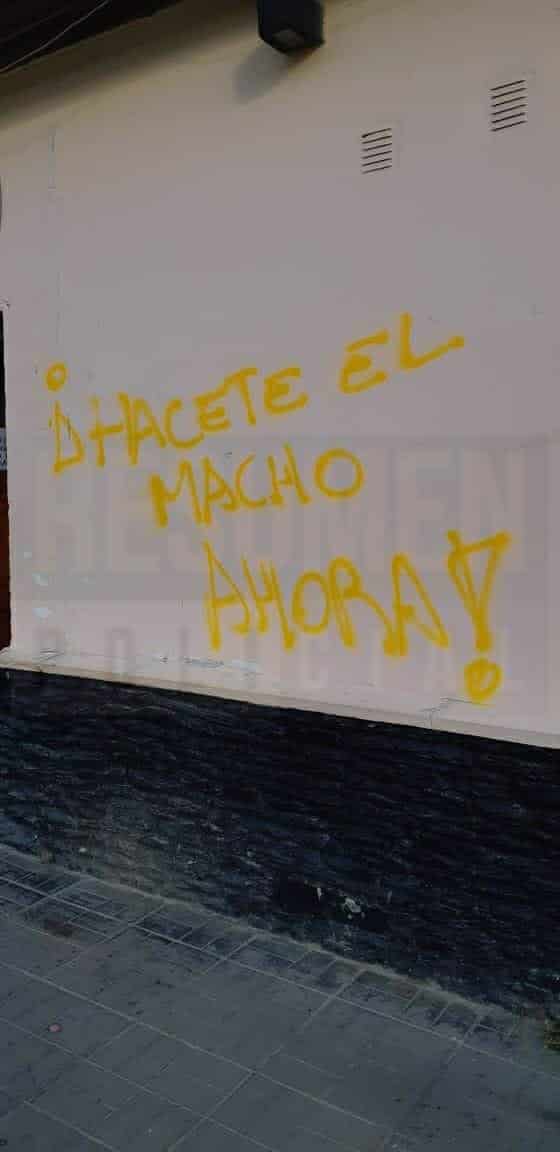 ¡HACETE EL
MACHO
AHORA!
RESUMEN
POLICIAL